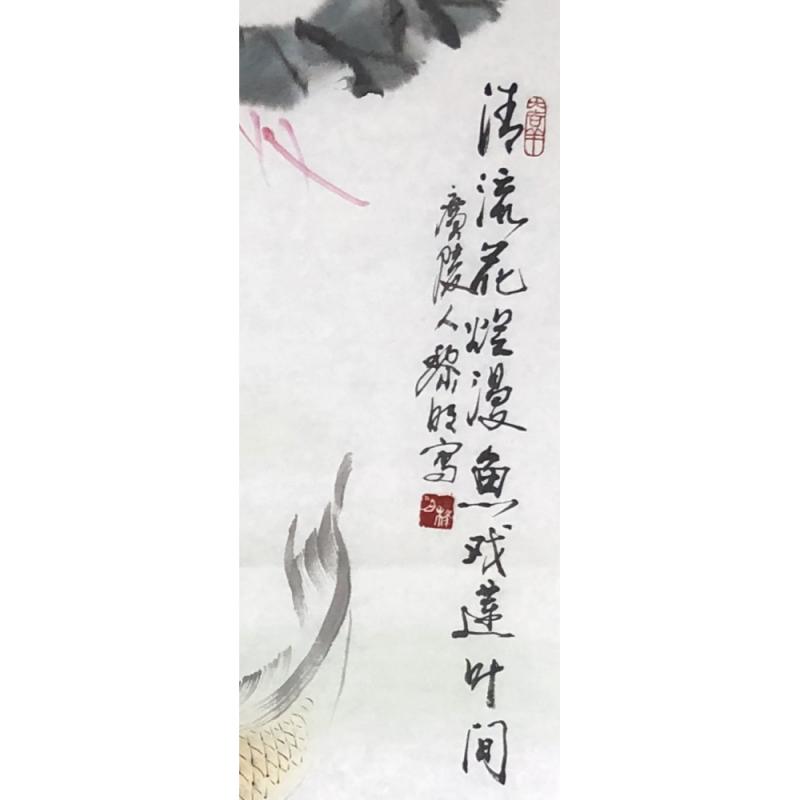 清流花烂漫鱼戏莲叶间
廣陵人黎明寫